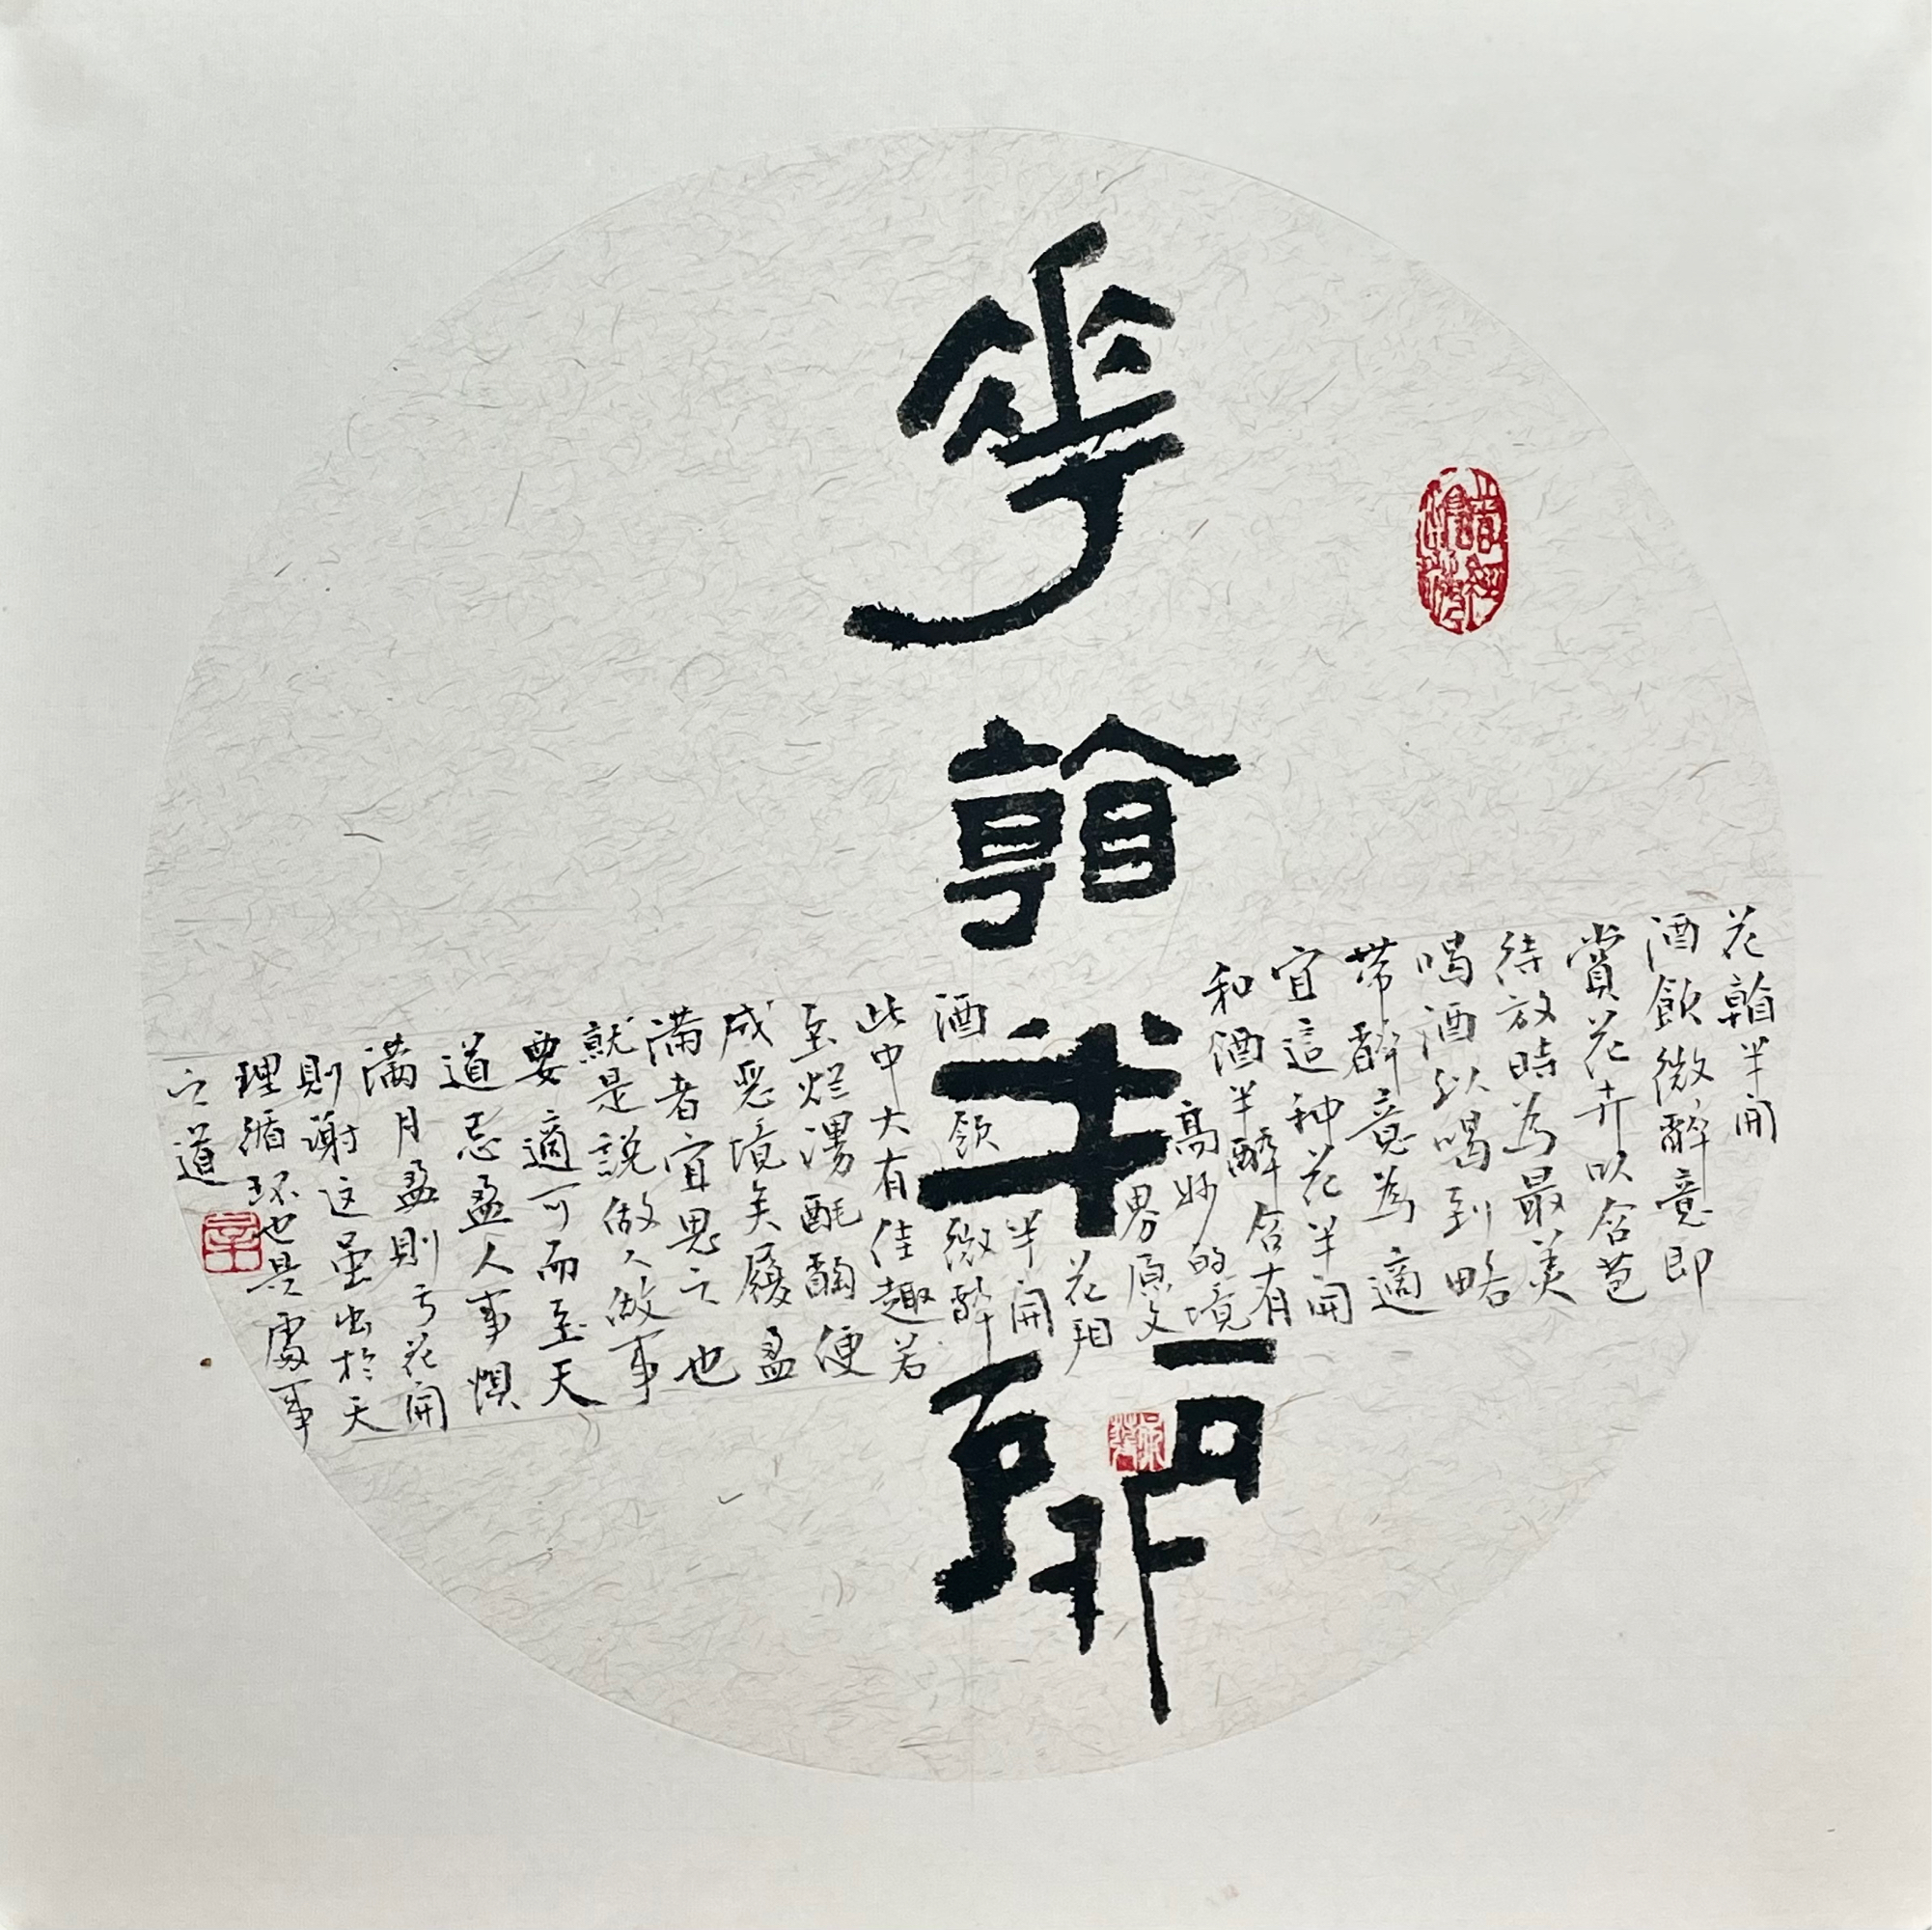 華看半開
花看半開
酒飲微醉意即
賞花卉以含苞
待放時為最美
喝酒以喝到略
帶醉意為適
宜這种花半開
和酒半醉含有
高妙的境
界原文
花看
半開
酒飲微醉
此中大有佳趣若
至烂漫酕醄便
成恶境矣履盈
满者宜思之也
就是說做人做事
要適可而至天
道忌盈人事惧
满月盈則亏花開
則謝这虽出於天
理循环也是處事
之道